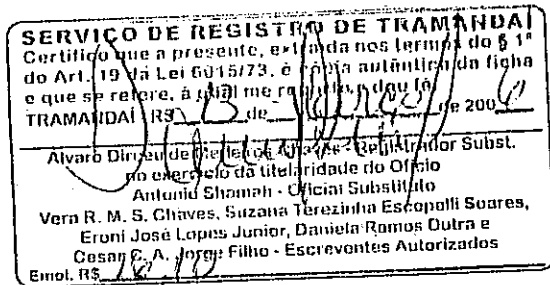 SERVIÇO DE REGISTRO DE TRAMANDAÍ
Certifico que a presente, extraída nos termos do § 1º
do Art. 19 da Lei 6015/73, é cópia autêntica da ficha
e que se refere, à qual me reporto e dou fé.
TRAMANDAÍ RS de de 200
Alvaro Dirceu de Medeiros Chaves - Registrador Subst.
no exercício da titularidade do Ofício
Antonio Shamah - Oficial Substituto
Vera R. M. S. Chaves, Suzana Terezinha Escopelli Soares,
Eroni José Lopes Junior, Daniela Ramos Dutra e
Cesar C. A. Jorge Filho - Escreventes Autorizados
Emol. R$